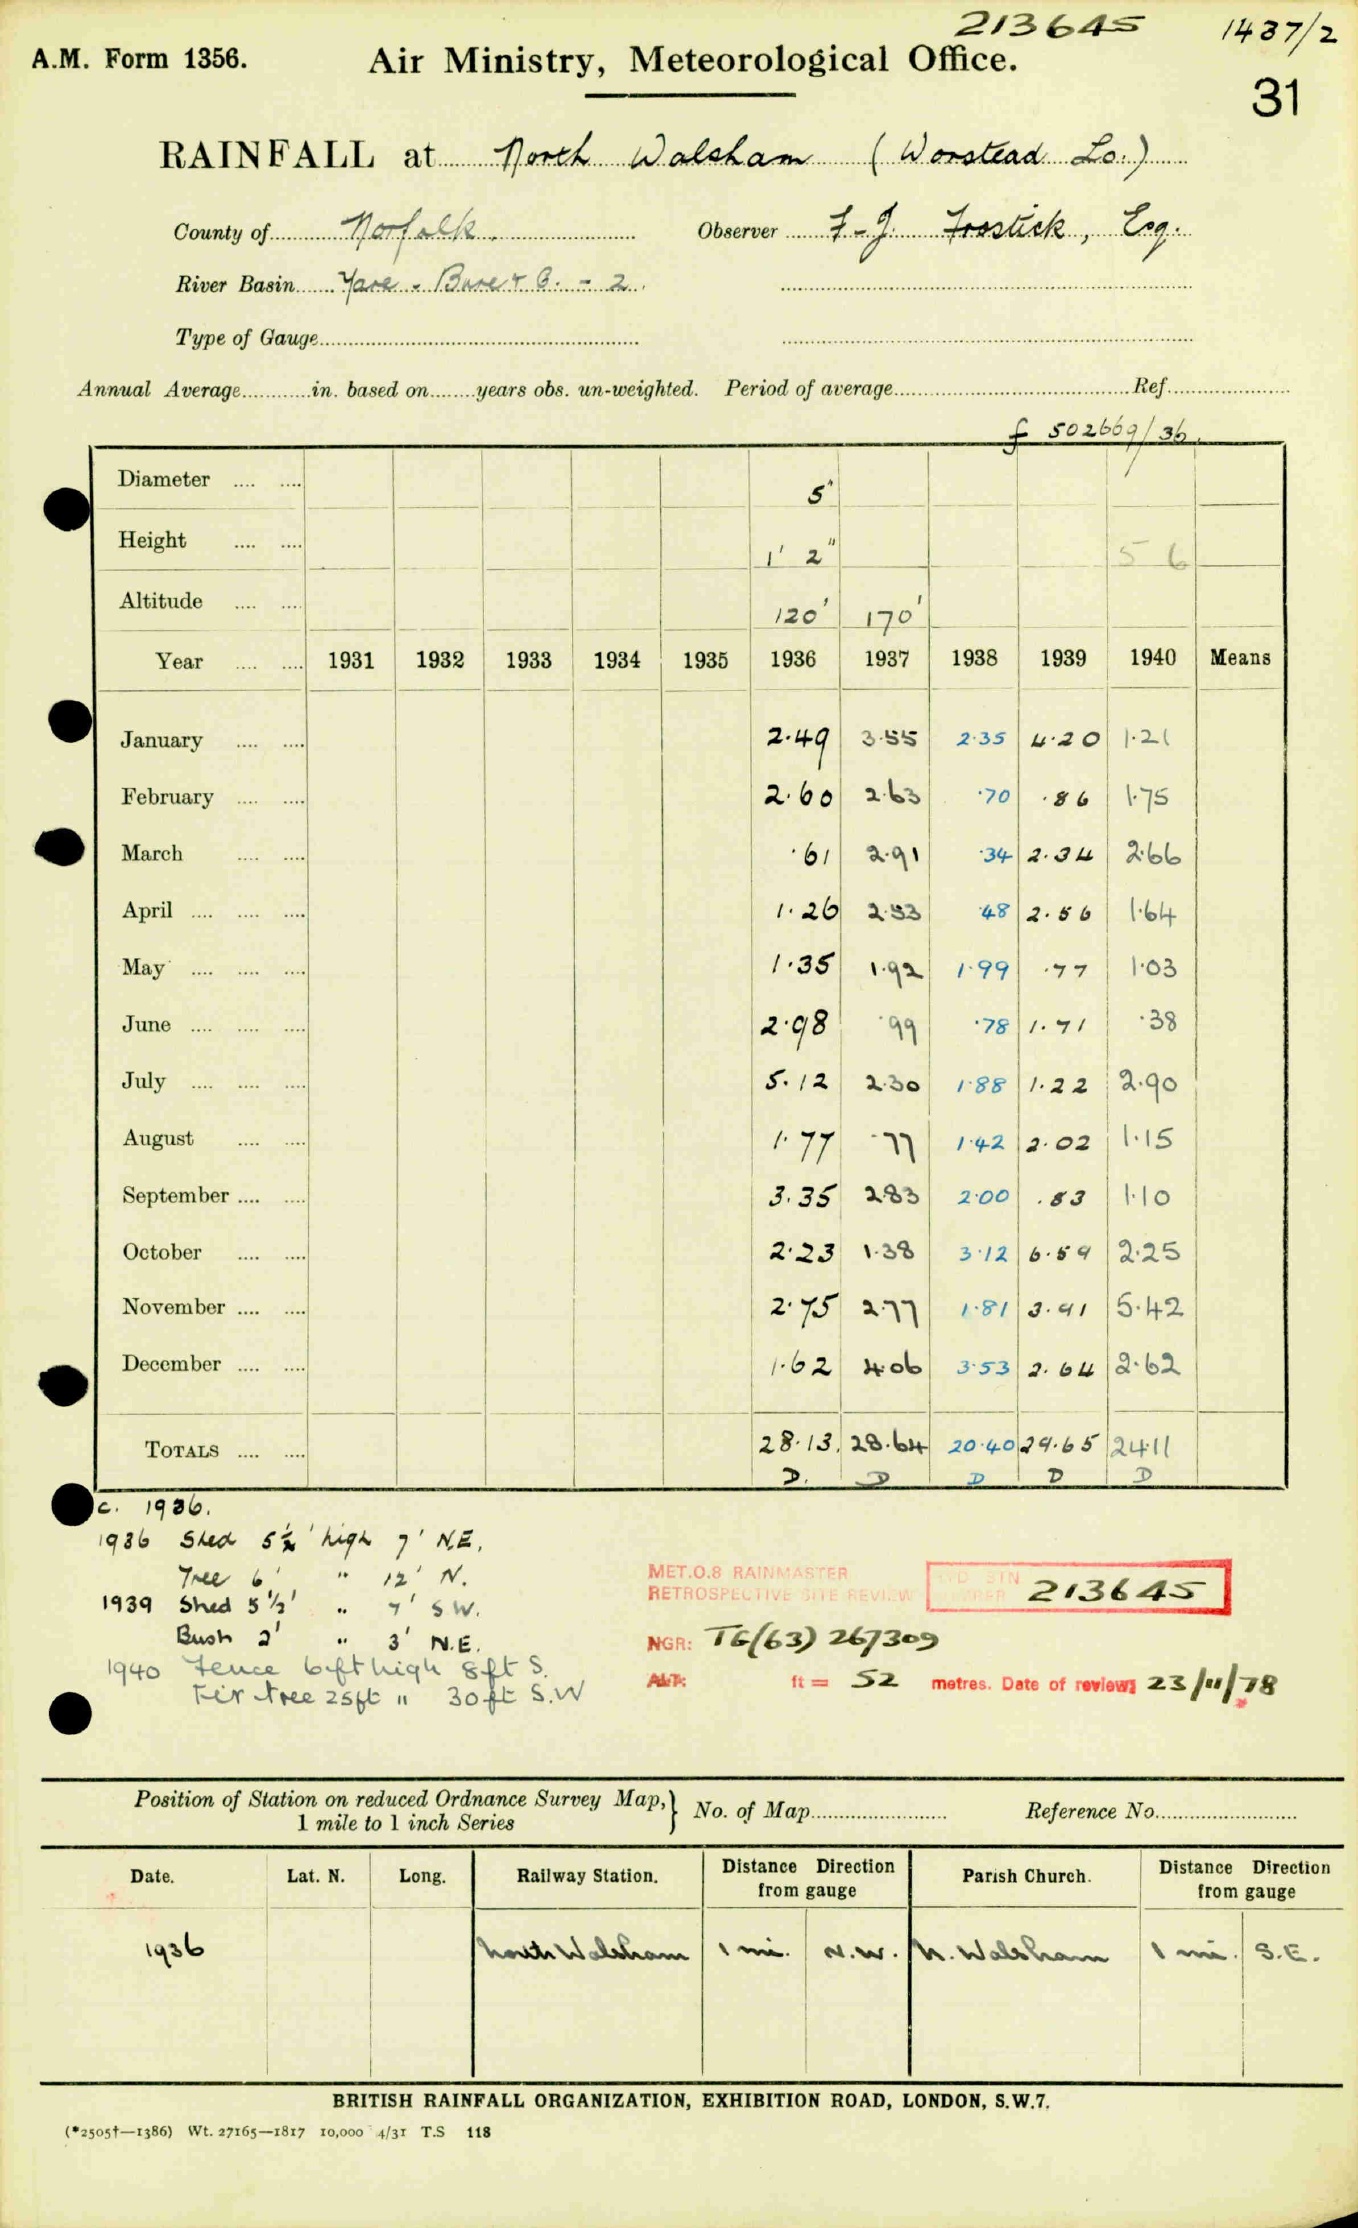 213645 1437/2
A.M. Form 1356. Air Ministry, Meteorological Office.
31
RAINFALL at North Walsham (Worstead Lo.)
County of Norfolk. Observer F-J. Frostick, Esq.
River Basin Yare - Bure & C. - 2.
Type of Gauge
Annual Average in. based on years obs. un-weighted. Period of average Ref.
f 502669/36.
Diameter 5"
Height 1' 2" 5 6
Altitude 120' 170'
Year 1931 1932 1933 1934 1935 1936 1937 1938 1939 1940 Means
January 2.49 3.55 2.35 4.20 1.21
February 2.60 2.63 .70 .86 1.75
March .61 2.91 .34 2.34 2.66
April 1.26 2.53 .48 2.56 1.64
May 1.35 1.92 1.99 .77 1.03
June 2.98 .99 .78 1.71 .38
July 5.12 2.30 1.88 1.22 2.90
August 1.77 .77 1.42 2.02 1.15
September 3.35 2.83 2.00 .83 1.10
October 2.23 1.38 3.12 6.59 2.25
November 2.75 2.77 1.81 3.91 5.42
December 1.62 4.06 3.53 2.64 2.62
TOTALS 28.13 28.64 20.40 29.65 24.11
D. D D D D
c. 1936.
1936 Shed 5½' high 7' N.E.
Tree 6' " 12' N.
1939 Shed 5½' " 7' S.W.
Bush 2' " 3' N.E.
1940 Fence 6ft high 8ft S.
Fir tree 25ft " 30ft S.W
MET.O.8 RAINMASTER
RETROSPECTIVE SITE REVIEW
STN 213645
NGR: TG(63) 267309
ALT: ft = 52 metres. Date of review: 23/11/78
Position of Station on reduced Ordnance Survey Map, 1 mile to 1 inch Series } No. of Map Reference No.
Date. Lat. N. Long. Railway Station. Distance Direction from gauge Parish Church. Distance Direction from gauge
1936 North Walsham 1 mi. N.W. N. Walsham 1 mi. S.E.
BRITISH RAINFALL ORGANIZATION, EXHIBITION ROAD, LONDON, S.W.7.
(*2505†—1386) Wt. 27165—1817 10,000 4/31 T.S 118